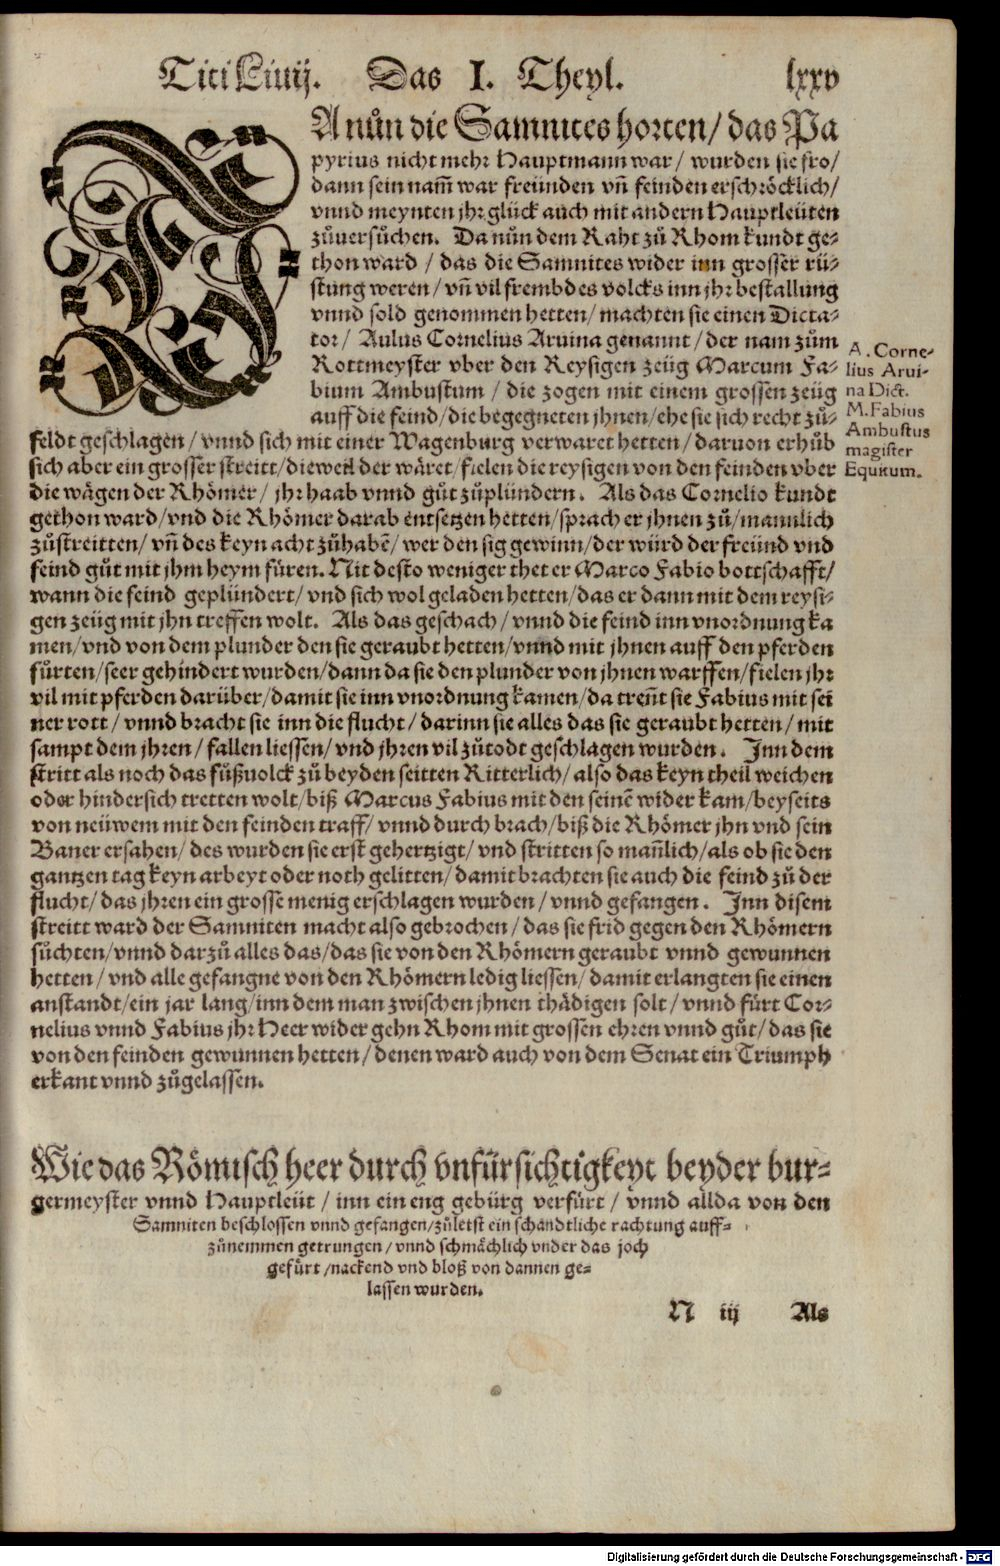 Titi Liuij. Das I. Theyl. lxxv
DA nůn die Samnites horten/ das Pa
pyrius nicht mehr Hauptmann war/ wurden sie fro/
dann sein nam̄ war freünden vn̄ feinden erschröcklich/
vnnd meynten jhr glück auch mit andern Hauptleüten
zůuersůchen. Da nůn dem Raht zů Rhom kundt ge-
thon ward / das die Samnites wider inn grosser rü-
stung weren/ vn̄ vil frembdes volcks inn jhr bestallung
vnnd sold genommen hetten/ machten sie einen Dicta-
tor/ Aulus Cornelius Aruina genannt/ der nam zům
Rottmeyster vber den Reysigen zeüg Marcum Fa-
bium Ambustum / die zogen mit einem grossen zeüg
auff die feind/ die begegneten jhnen/ ehe sie sich recht zů-
feldt geschlagen/ vnnd sich mit einer Wagenburg verwaret hetten/ daruon erhůb
sich aber ein grosser streitt/ dieweil der wäret/ fielen die reysigen von den feinden vber
die wägen der Rhömer/ jhr haab vnnd gůt zůplündern. Als das Cornelio kundt
gethon ward/ vnd die Rhömer darab entsetzen hetten/ sprach er jhnen zů/ mannlich
zůstreitten/ vn̄ des keyn acht zůhabē/ wer den sig gewinn/ der würd der freünd vnd
feind gůt mit jhm heym füren. Nit desto weniger thet er Marco Fabio bottschafft/
wann die feind geplündert/ vnd sich wol geladen hetten/ das er dann mit dem reysi-
gen zeüg mit jhn treffen wolt. Als das geschach/ vnnd die feind inn vnordnung ka
men/ vnd von dem plunder den sie geraubt hetten/ vnnd mit jhnen auff den pferden
fürten/ seer gehindert wurden/ dann da sie den plunder von jhnen warffen/ fielen jhr
vil mit pferden darüber/ damit sie inn vnordnung kamen/ da tren̄t sie Fabius mit sei
ner rott/ vnnd bracht sie inn die flucht/ darinn sie alles das sie geraubt hetten/ mit
sampt dem jhren/ fallen liessen/ vnd jhren vil zůtodt geschlagen wurden. Inn dem
stritt als noch das fůßuolck zů beyden seitten Ritterlich/ also das keyn theil weichen
oder hindersich tretten wolt/ biß Marcus Fabius mit den seinē wider kam/ beyseits
von neüwem mit den feinden traff/ vnnd durch brach/ biß die Rhömer jhn vnd sein
Baner ersahen/ des wurden sie erst gehertzigt/ vnd stritten so man̄lich/ als ob sie den
gantzen tag keyn arbeyt oder noth gelitten/ damit brachten sie auch die feind zů der
flucht/ das jhren ein grosse menig erschlagen wurden/ vnnd gefangen. Inn disem
streitt ward der Samniten macht also gebrochen/ das sie frid gegen den Rhömern
sůchten/ vnnd darzů alles das/ das sie von den Rhömern geraubt vnnd gewunnen
hetten/ vnd alle gefangne von den Rhömern ledig liessen/ damit erlangten sie einen
anstandt/ ein jar lang/ inn dem man zwischen jhnen thädigen solt/ vnnd fürt Cor-
nelius vnnd Fabius jhr Heer wider gehn Rhom mit grossen ehren vnnd gůt/ das sie
von den feinden gewunnen hetten/ denen ward auch von dem Senat ein Triumph
erkant vnnd zůgelassen.
A. Corne-
lius Arui-
na Dict.
M. Fabius
Ambustus
magister
Equitum.
Wie das Römisch heer durch vnfürsichtigkeyt beyder bur-
germeyster vnnd Hauptleüt/ inn ein eng gebürg verfürt/ vnnd allda von den
Samniten beschlossen vnnd gefangen/ zůletst ein schandtliche rachtung auff-
zůnemmen getrungen/ vnnd schmächlich vnder das joch
gefürt/ nackend vnd bloß von dannen ge-
lassen wurden.
N iij Als
Digitalisierung gefördert durch die Deutsche Forschungsgemeinschaft - DFG